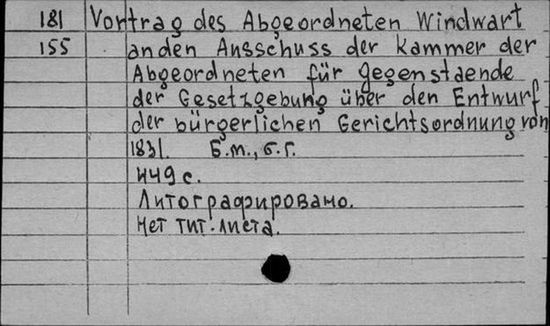 181 Vortrag des Abgeordneten Windwart
155 an den Ausschuss der Kammer der
Abgeordneten für Gegenstaende
der Gesetzgebung über den Entwurf
der bürgerlichen Gerichtsordnung von
1831. Б.м., б.г.
449 с.
Литографировано.
Нет тит. листа.